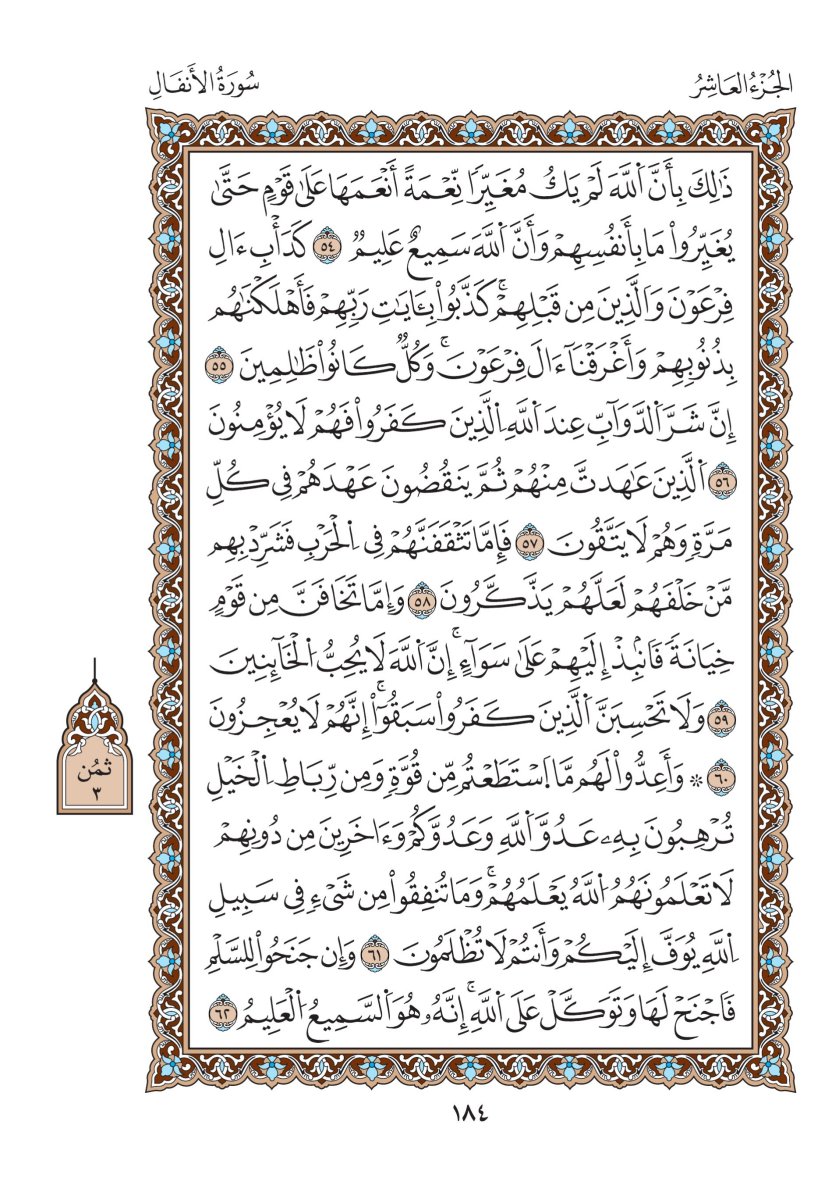 الجُزْءُ العَاشِرُ
سُورَةُ الأَنفَالِ
ذَٰلِكَ بِأَنَّ ٱللَّهَ لَمْ يَكُ مُغَيِّرًا نِّعْمَةً أَنْعَمَهَا عَلَىٰ قَوْمٍ حَتَّىٰ
يُغَيِّرُوا۟ مَا بِأَنفُسِهِمْ وَأَنَّ ٱللَّهَ سَمِيعٌ عَلِيمٌ ٥٤ كَدَأْبِ ءَالِ
فِرْعَوْنَ وَٱلَّذِينَ مِن قَبْلِهِمْۚ كَذَّبُوا۟ بِـَٔايَٰتِ رَبِّهِمْ فَأَهْلَكْنَٰهُم
بِذُنُوبِهِمْ وَأَغْرَقْنَآ ءَالَ فِرْعَوْنَۚ وَكُلٌّ كَانُوا۟ ظَٰلِمِينَ ٥٥
إِنَّ شَرَّ ٱلدَّوَآبِّ عِندَ ٱللَّهِ ٱلَّذِينَ كَفَرُوا۟ فَهُمْ لَا يُؤْمِنُونَ
٥٦ ٱلَّذِينَ عَٰهَدتَّ مِنْهُمْ ثُمَّ يَنقُضُونَ عَهْدَهُمْ فِى كُلِّ
مَرَّةٍ وَهُمْ لَا يَتَّقُونَ ٥٧ فَإِمَّا تَثْقَفَنَّهُمْ فِى ٱلْحَرْبِ فَشَرِّدْ بِهِم
مَّنْ خَلْفَهُمْ لَعَلَّهُمْ يَذَّكَّرُونَ ٥٨ وَإِمَّا تَخَافَنَّ مِن قَوْمٍ
خِيَانَةً فَٱنۢبِذْ إِلَيْهِمْ عَلَىٰ سَوَآءٍۚ إِنَّ ٱللَّهَ لَا يُحِبُّ ٱلْخَآئِنِينَ
٥٩ وَلَا تَحْسِبَنَّ ٱلَّذِينَ كَفَرُوا۟ سَبَقُوٓا۟ۚ إِنَّهُمْ لَا يُعْجِزُونَ
٦٠ ۞ وَأَعِدُّوا۟ لَهُم مَّا ٱسْتَطَعْتُم مِّن قُوَّةٍ وَمِن رِّبَاطِ ٱلْخَيْلِ
تُرْهِبُونَ بِهِۦ عَدُوَّ ٱللَّهِ وَعَدُوَّكُمْ وَءَاخَرِينَ مِن دُونِهِمْ
لَا تَعْلَمُونَهُمُ ٱللَّهُ يَعْلَمُهُمْۚ وَمَا تُنفِقُوا۟ مِن شَىْءٍ فِى سَبِيلِ
ٱللَّهِ يُوَفَّ إِلَيْكُمْ وَأَنتُمْ لَا تُظْلَمُونَ ٦١ وَإِن جَنَحُوا۟ لِلسَّلْمِ
فَٱجْنَحْ لَهَا وَتَوَكَّلْ عَلَى ٱللَّهِۚ إِنَّهُۥ هُوَ ٱلسَّمِيعُ ٱلْعَلِيمُ ٦٢
ثُمُن
٣
١٨٤